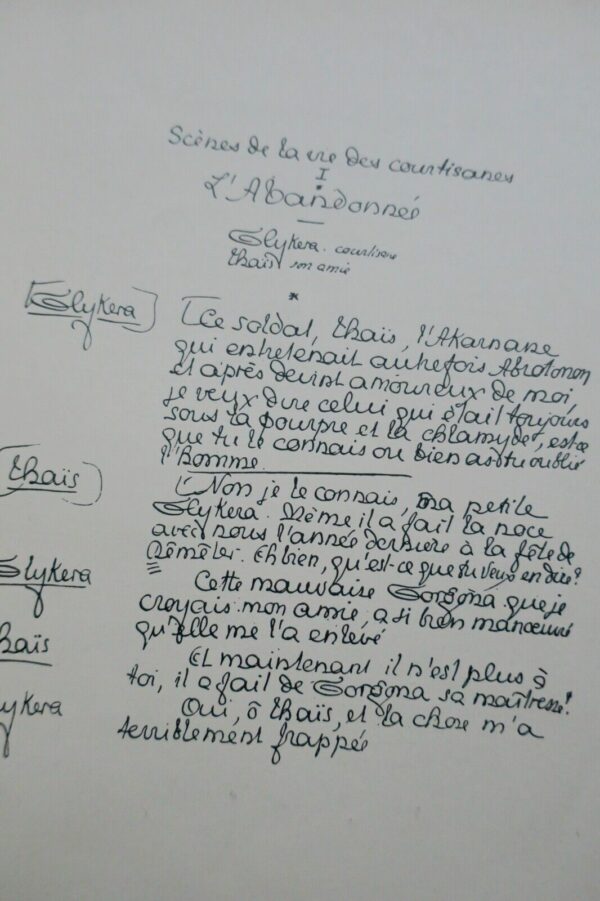 Scènes de la vie des courtisanes
I
L'Abandonnée
Glykera. courtisane
Thaïs son amie
*
[Glykera] [Ce soldat, Thaïs, l'Akarnane
qui entretenait autrefois Abrotonon
et après devint amoureux de moi,
je veux dire celui qui était toujours
sous la pourpre et la chlamyde, est-ce
que tu le connais ou bien as-tu oublié
l'homme.
(Thaïs) [Non je le connais, ma petite
Glykera. Même il a fait la noce
avec nous l'année dernière à la fête de
Démêter. Eh bien, qu'est-ce que tu veux en dire?
Glykera Cette mauvaise Gorgona que je
croyais mon amie, a si bien manœuvré
qu'elle me l'a enlevé
Thaïs Et maintenant il n'est plus à
toi, il a fait de Gorgona sa maîtresse!
ykera Oui, ô Thaïs, et la chose m'a
terriblement frappée